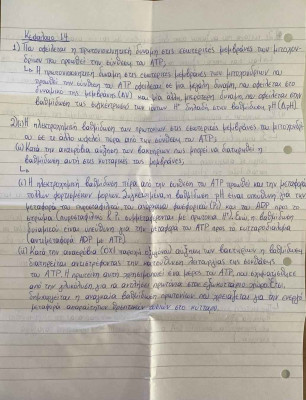 Κεφάλαιο 14
1) Που οφείλεται η πρωτονιοκινητική δύναμη στις εσωτερικές μεμβράνες των μιτοχον-
δρίων που προωθεί την σύνθεση του ATP;
↳ Η πρωτονιοκινητική δύναμη στις εσωτερικές μεμβράνες των μιτοχονδρίων που
προωθεί την σύνθεση του ATP οφείλεται σε ένα μεγάλο βαθμό, που οφείλεται στο
δυναμικό της μεμβράνης (ΔV) και για άλλη μικρότερη δύναμη, που οφείλεται στην
βαθμίδωση της συγκέντρωσης των ιόντων H⁺ δηλαδή στη βαθμίδωση pH (ΔpH).
2)(i) Η ηλεκτροχημική βαθμίδωση των πρωτονίων στις εσωτερικές μεμβράνες του μιτοχονδρί-
ου σε τι άλλο ωφελεί πέρα από την σύνθεση του ATP;
(ii) Κατά την αναερόβια αύξηση των βακτηρίων πως μπορεί να διατηρηθεί η
βαθμίδωση αυτή στις κυτταρικές της μεμβράνες;
↳
(i) Η ηλεκτροχημική βαθμίδωση πέρα από την σύνθεση του ATP προωθεί και την μεταφορά
πολλών φορτισμένων μορίων. Συγκεκριμένα, η βαθμίδωση pH είναι υπεύθυνη για την
μεταφορά του πυροσταφυλικού, του ανόργανου φωσφορικού (Pi) και του ADP προς το
(πυροσταφυλικό & Pi συμμεταφέρονται με πρωτόνια H⁺) ενώ η βαθμίδωση
δυναμικού είναι υπεύθυνη για την μεταφορά του ATP προς το κυτταρόπλασμα
(αντιμεταφορά ADP με ATP).
(ii) Κατά την αναερόβια (ΟΧΙ παροχή οξυγόνου) αύξηση των βακτηρίων η βαθμίδωση
διατηρείται αντιστρέφοντας την κατεύθυνση λειτουργίας της συνθάσης
του ATP. Η πρωτεΐνη αυτή χρησιμοποιεί ένα μέρος του ATP, που παράχθηκε
από την γλυκόλυση για να αντλήσει πρωτόνια στον εξωκυττάριο χώρο. Έτσι,
δημιουργείται η αναγκαία βαθμίδωση πρωτονίων που χρειάζεται για την ενεργό
μεταφορά απαραίτητων θρεπτικών υλικών στο κύτταρο.